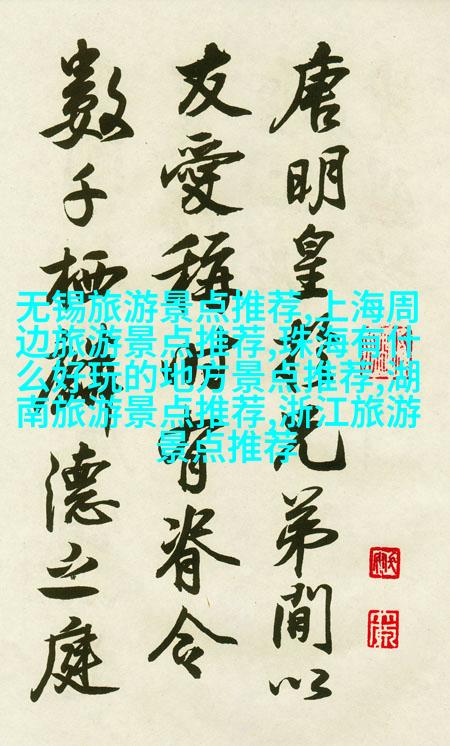 无锡旅游景点推荐,上海周
边旅游景点推荐,珠海有什
么好玩的地方景点推荐,湖
南旅游景点推荐,浙江旅游
景点推荐
唐明皇兄弟間以
友愛稱有脊令
數千栖麟德之庭